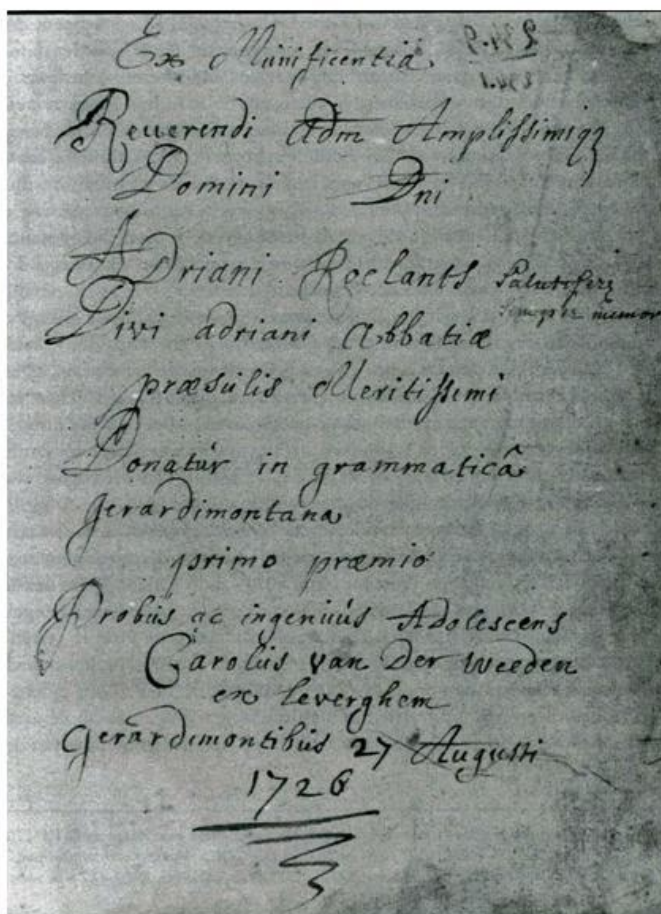 Ex Munificentia
Reverendi Adm Amplissimiqȝ
Domini Dni
Adriani Roelants
Divi adriani Abbatiæ
præsulis Meritissimi
Donatúr in grammaticâ
gerardimontana
primo præmio
Probús ac ingenuús Adolescens
Carolús van Der Weeden
ex leverghem
Gerardimontibús 27 Augusti
1726